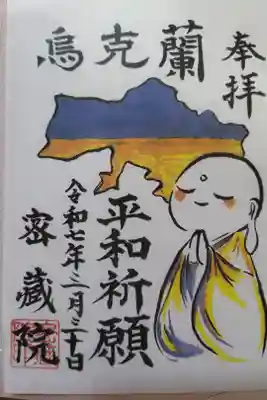 奉拝
烏克蘭
平和祈願
令和七年三月三十日
密蔵院